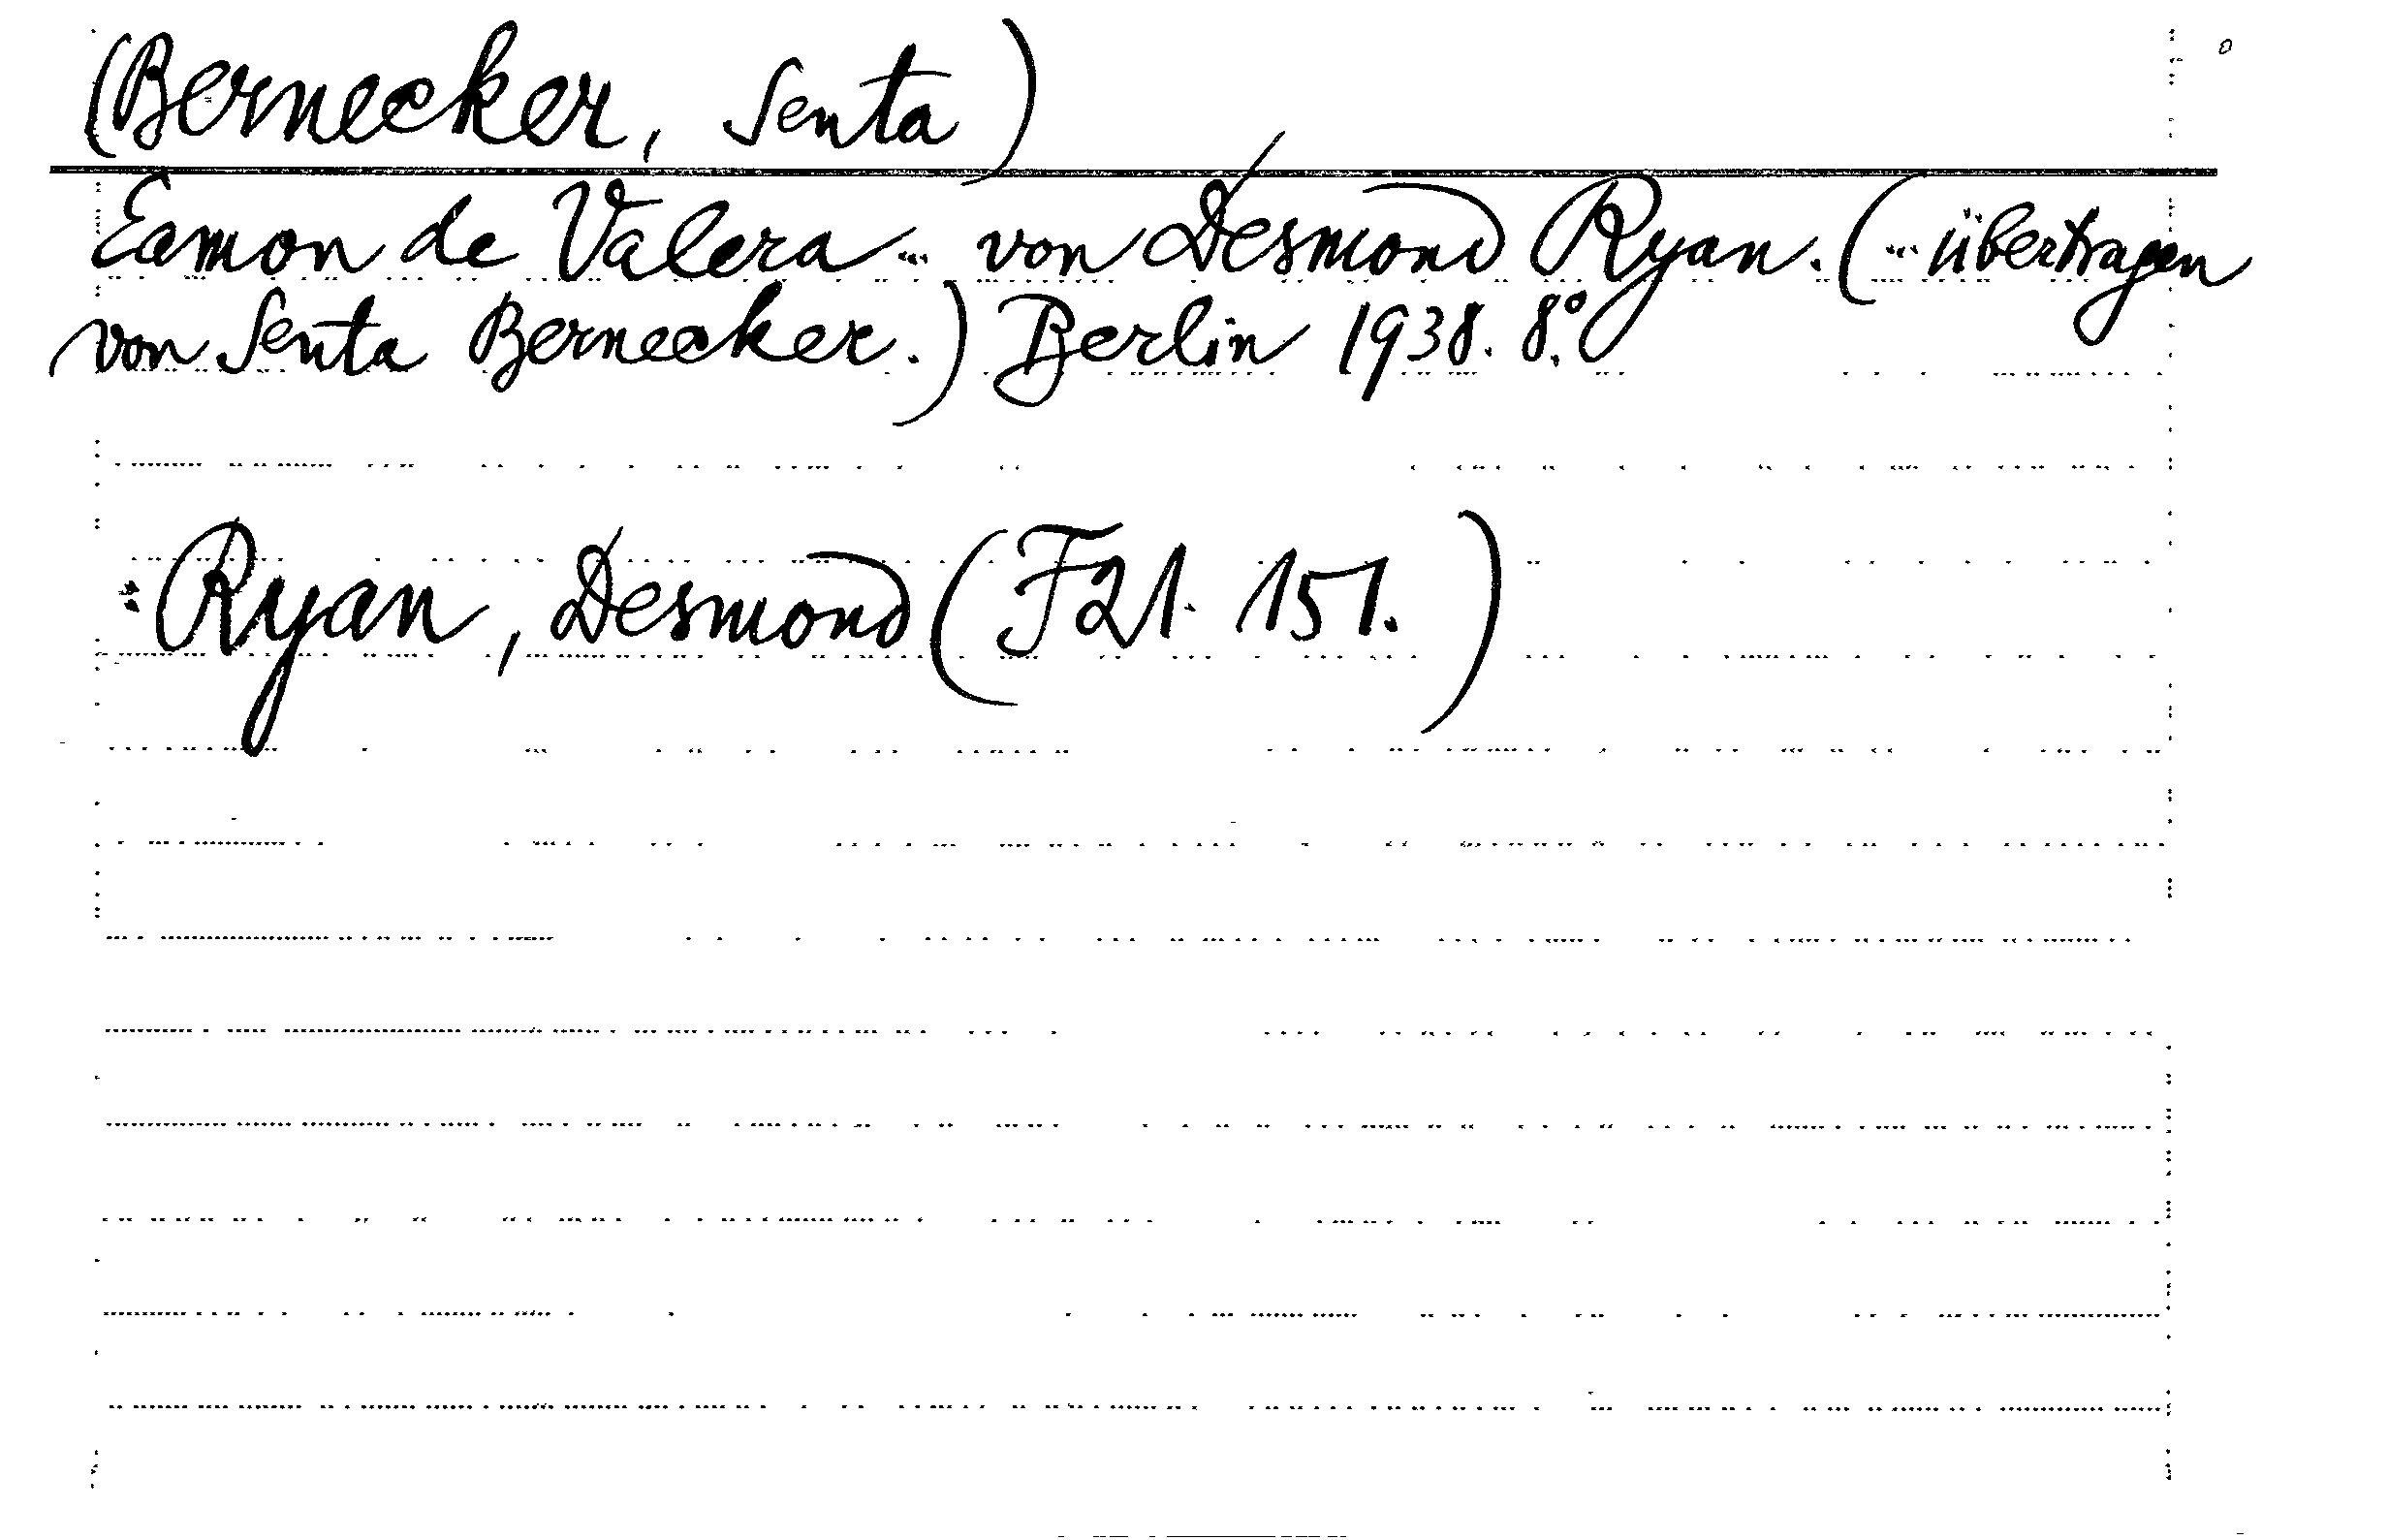 (Bernecker, Senta)
Eamon de Valera... von Desmond Ryan. (...übertragen
von Senta Bernecker.) Berlin 1938. 8°.
: Ryan, Desmond (F21. 151.)